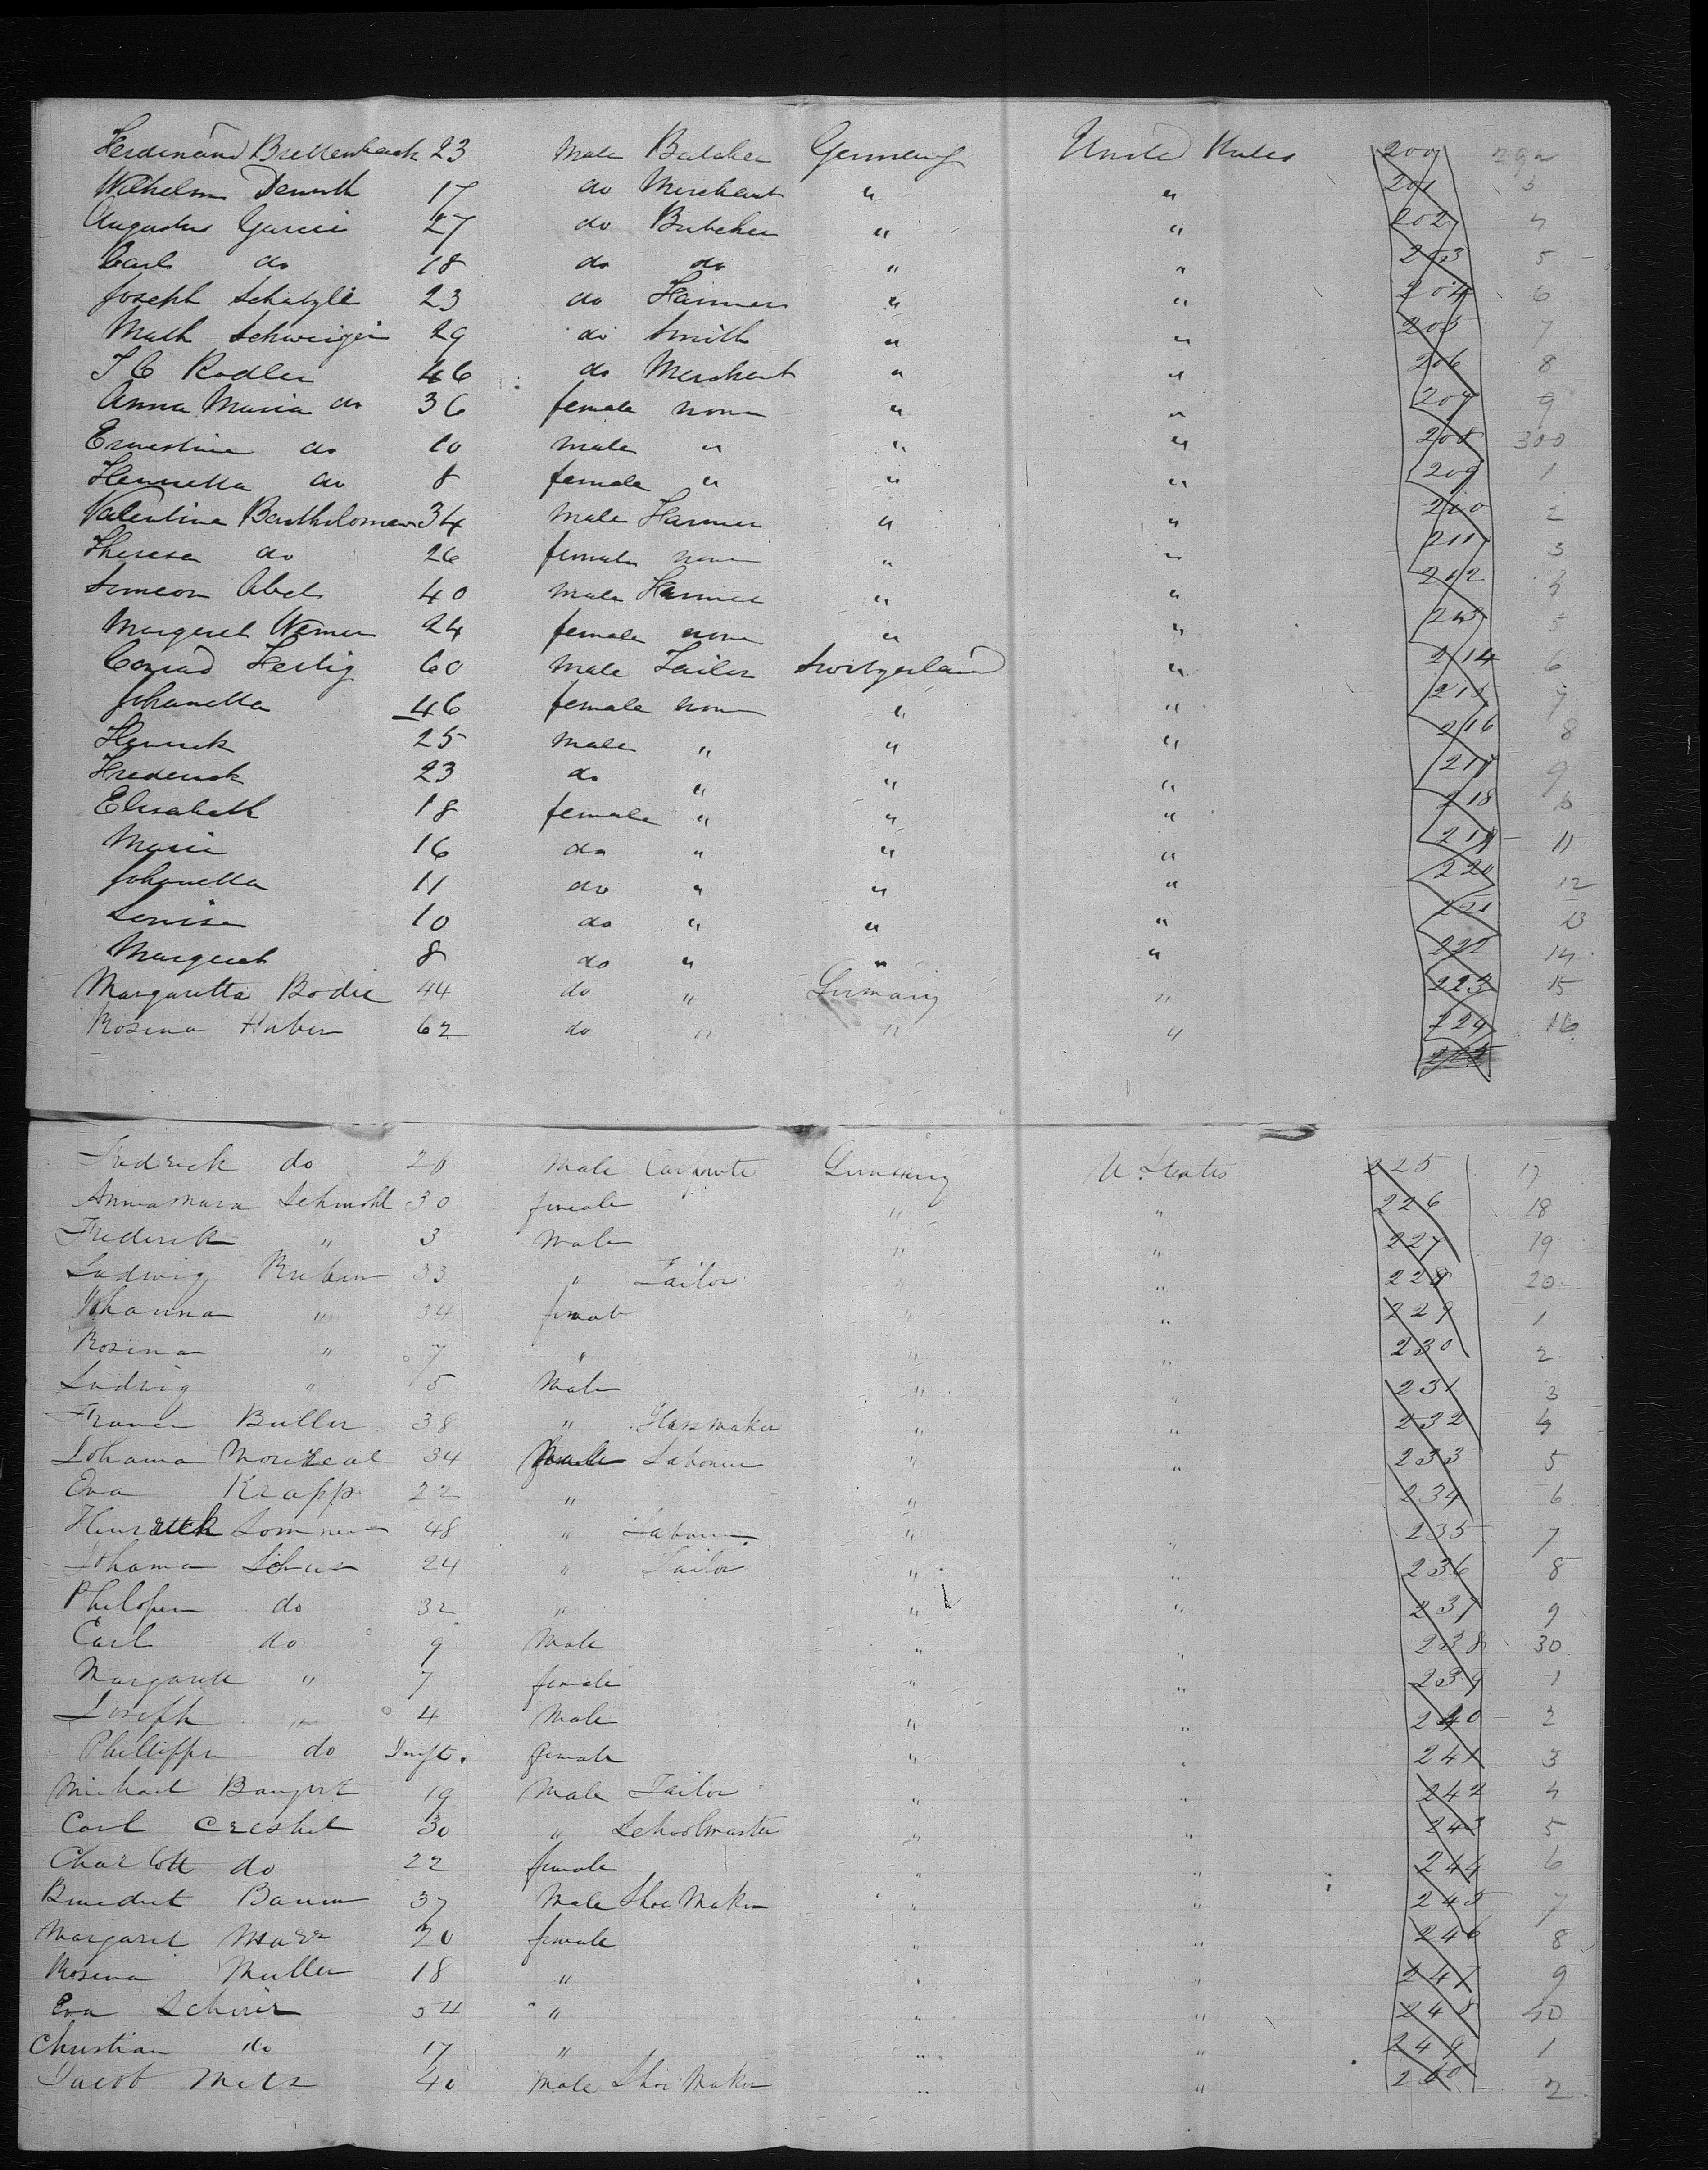 Ferdinand Brettenbach 23 Male Butcher Germany United States 200 292
Wilhelm 17 do Merchant " " 201 3
Augustus Garcie 27 do Butcher " " 202 4
Carl do 18 do do " " 203 5
Joseph Schatzle 23 do Farmer " " 204 6
Math Schweiger 29 do Smith " " 205 7
J C Rodler 46 do Merchant " " 206 8
Anna Maria do 36 female none " " 207 9
Ernestine do 10 male " " " 208 300
Henrietta do 8 female " " " 209 1
Valentine Bartholomew 34 Male Farmer " " 210 2
Theresa do 26 female none " " 211 3
Simeon Abel 40 Male Farmer " " 212 4
Margeret Werner 24 female none " " 213 5
Conrad Hertig 60 Male Tailor Switzerland " 214 6
Johanetta 46 female none " " 215 7
Henrick 25 Male " " " 216 8
Frederick 23 do " " " 217 9
Elisabeth 18 female " " " 218 10
Maria 16 do " " " 219 11
Johanetta 11 do " " " 220 12
Louisa 10 do " " " 221 13
Margaret 8 do " " " 222 14
Margaretta Bodie 44 do " Germany " 223 15
Rosina Huber 62 do " " " 224 16
225
Fredrick do 26 Male Carpente Germany U. States 225 17
Annamara Schmohl 30 female " " 226 18
Frederick " 3 Male " " 227 19
Ludwig Ruban 33 " Tailor " " 228 20
Johanna " 34 female " " 229 1
Rosina " 7 " " " 230 2
Ludwig " 5 Male " " 231 3
Franca Buller 38 " Glassmaker " " 232 4
Johanna Monreal 34 Male Labourer " " 233 5
Eva Krapp 22 " " 234 6
Henrick Sommer 48 " Labourer " " 235 7
Johanna 24 " Tailor " " 236 8
do 32 " " " 237 9
Carl do 9 Male " " 238 30
Margarett " 7 female " " 239 1
Joseph " 4 Male " " 240 2
Phillippa do Inft. female " " 241 3
Michael Bangert 19 Male Tailor " " 242 4
Carl 30 " Schoolmaster " " 243 5
Charlott do 22 female " 244 6
Benedict Baum 37 Male Shoe Maker " " 245 7
Margaret Marr 20 female " " 246 8
Rosina Muller 18 " " " 247 9
Eva Schirer 54 " " " 248 40
Christian do 17 " " " 249 1
Jacob Metz 40 Male Shoe Maker " " 250 2